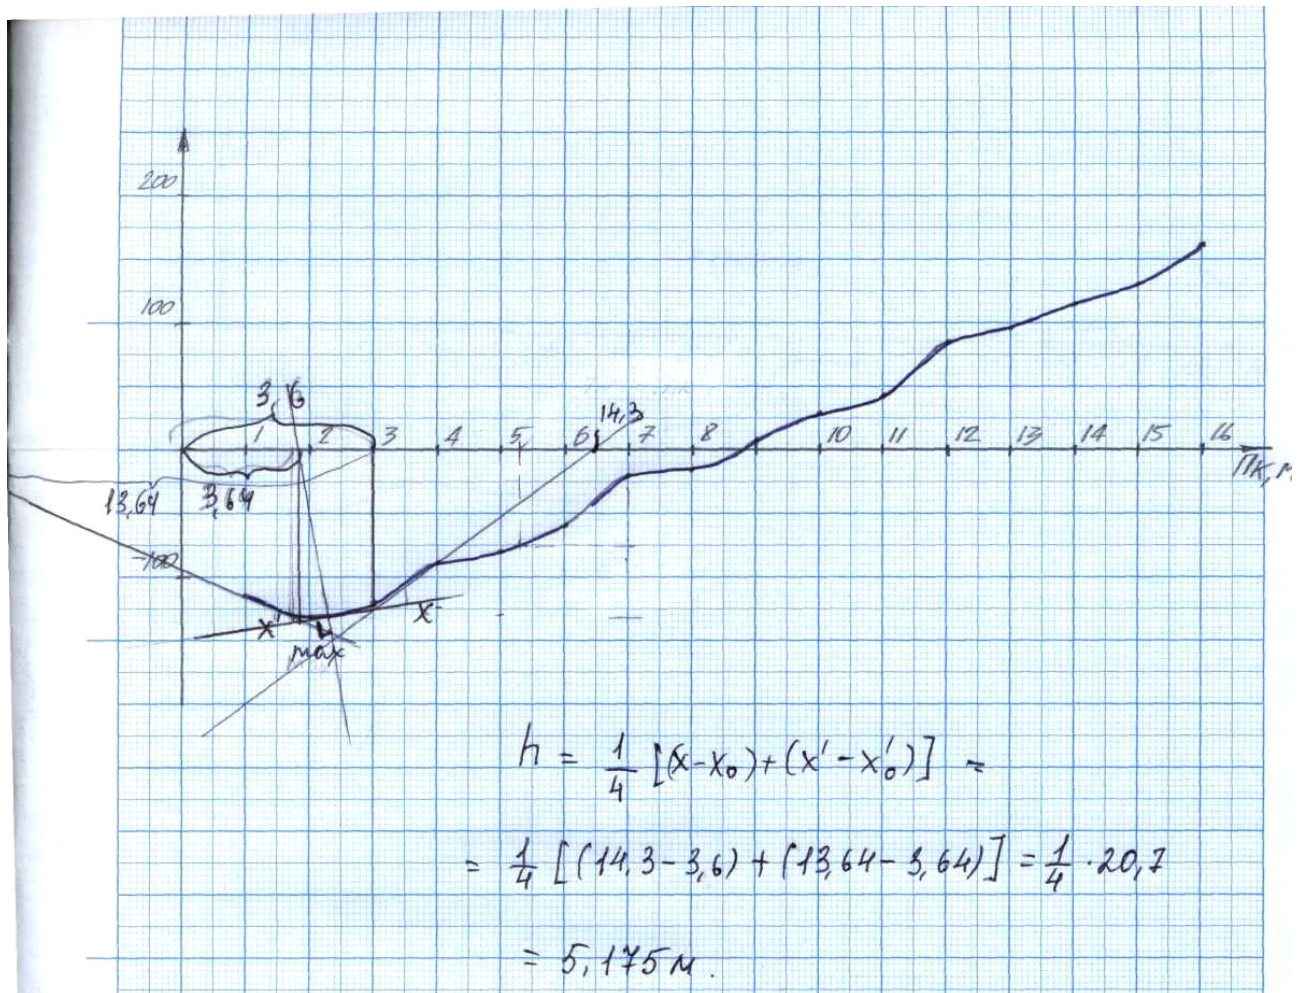 200
100
3,6
14,3
1 2 3 4 5 6 7 8 10 11 12 13 14 15 16
Пк, м
13,64
3,64
-100
x'
x
max
h = 1/4 [(x-x₀)+(x'-x₀')] =
= 1/4 [(14,3-3,6)+(13,64-3,64)] = 1/4 · 20,7
= 5,175 м.